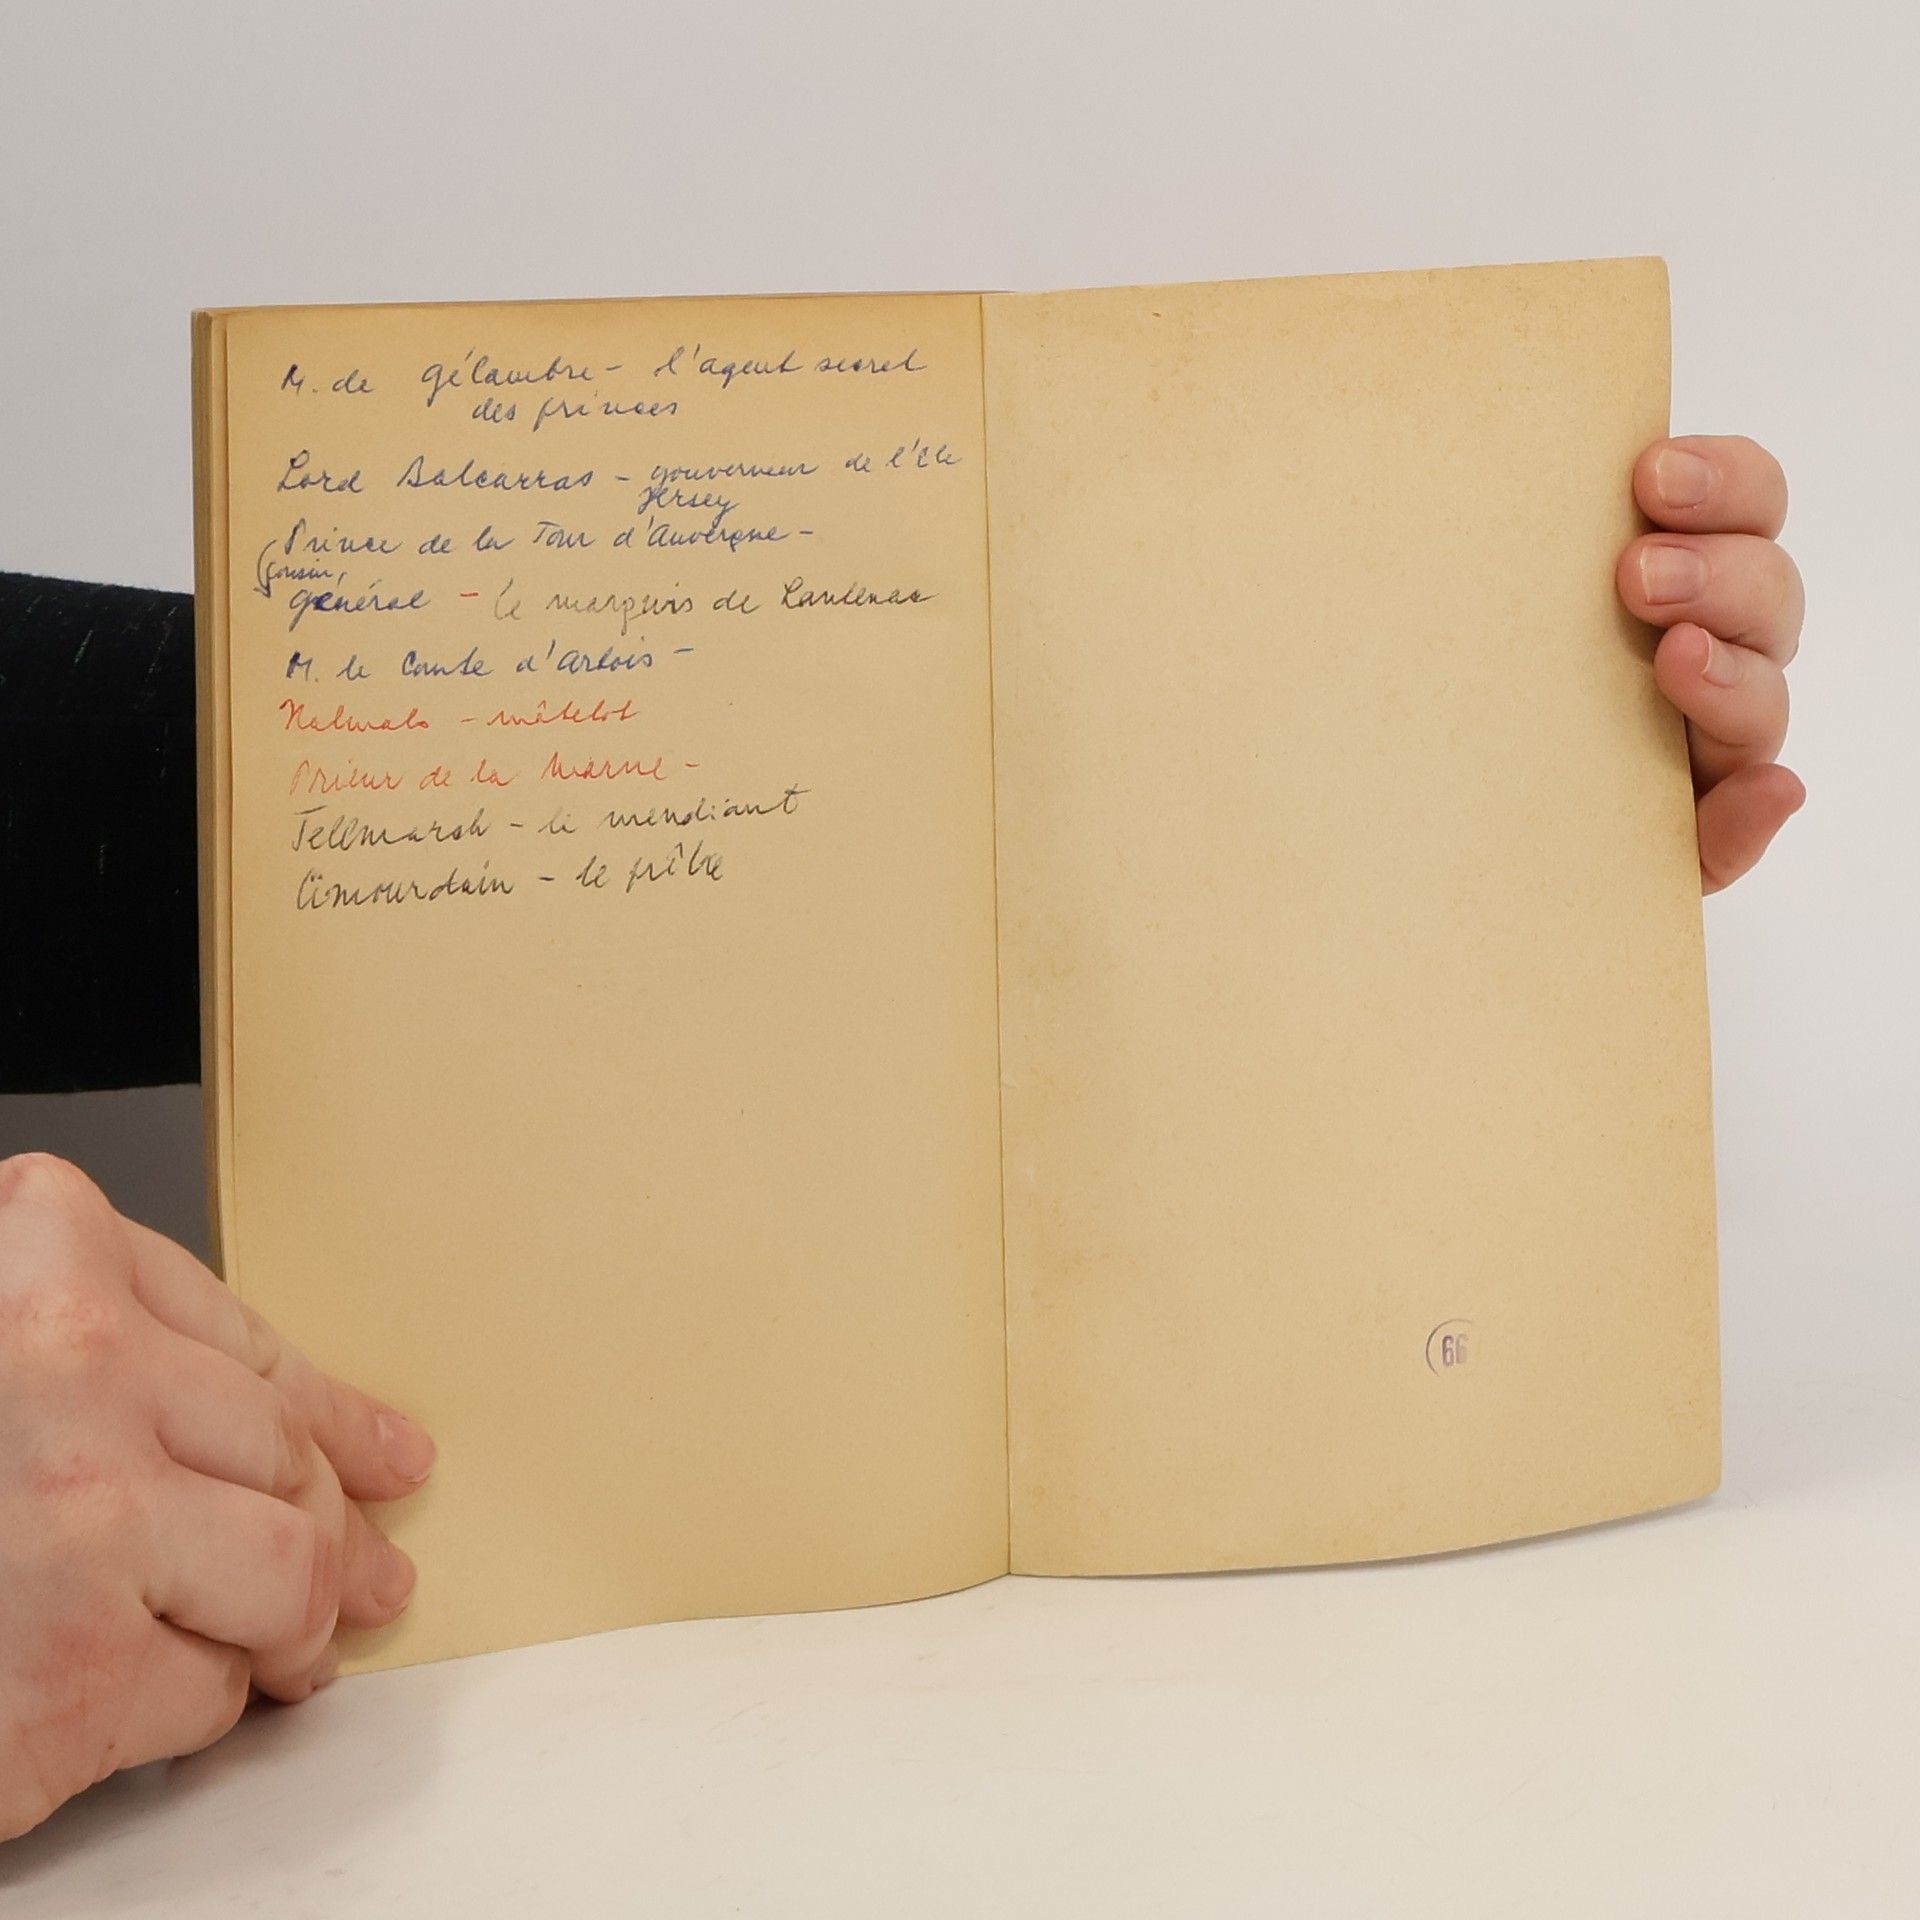 M. de Gélambre - l'agent secret
des princes
Lord Balcarras - gouverneur de l'île
Jersey
Prince de la Tour d'Auvergne -
(cousin,
général - le marquis de Lantenac
M. le Comte d'Artois -
Halmalo - mâtelot
Prieur de la Marne -
Tellmarch - le mendiant
Cimourdain - le prêtre
66